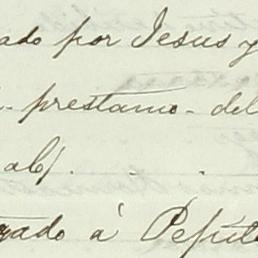 ado por Jesus y
prestamo - del
alf. . .
gado á Pefúto